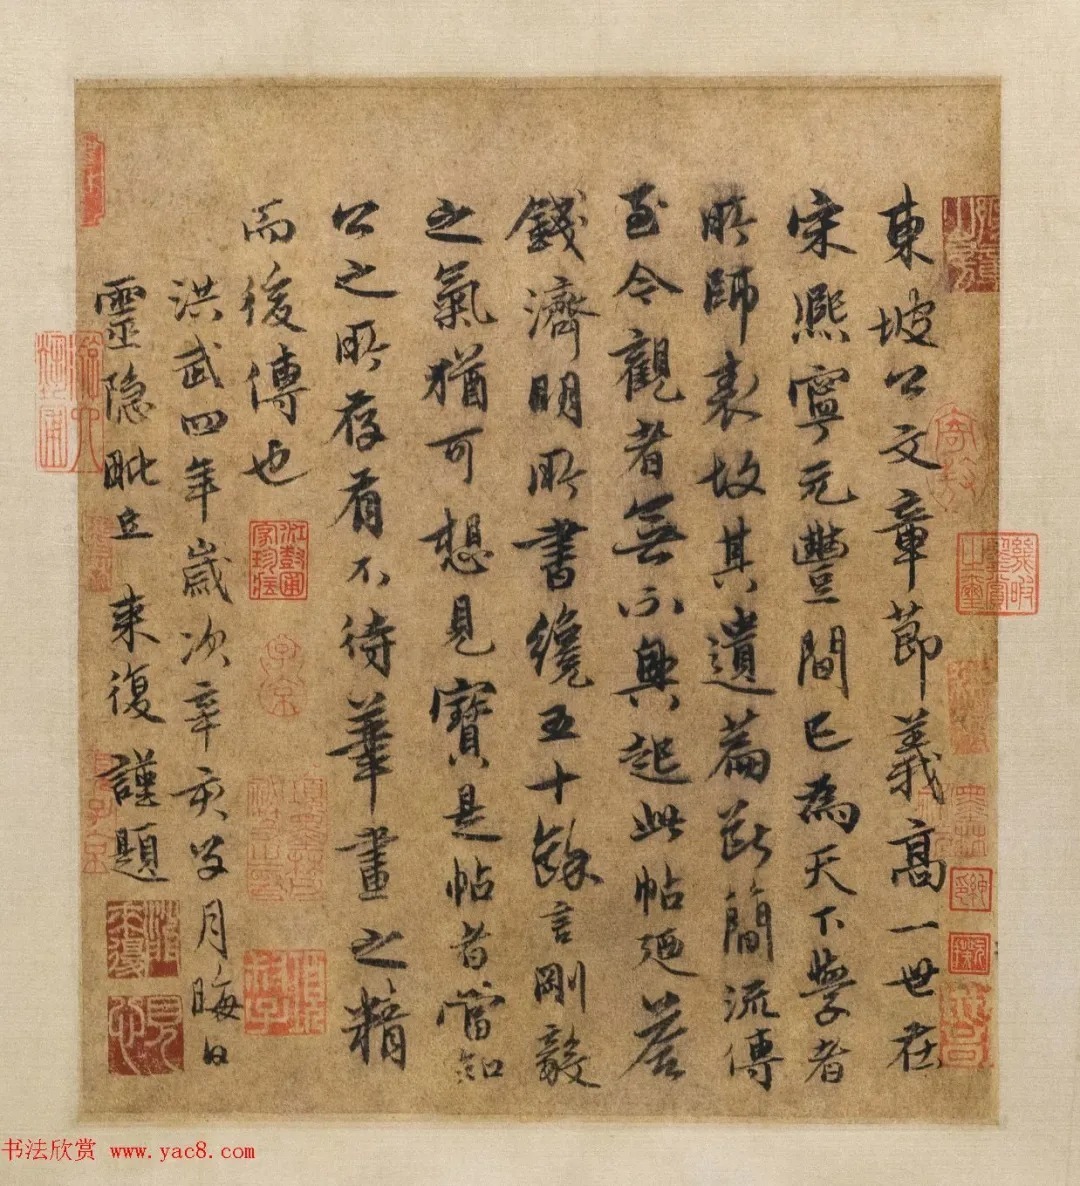 東坡公文章節義高一世在
宋熙寧元豐間已為天下學者
所師表故其遺篇斷簡流傳
至今觀者無不興起此帖廼答
錢濟明所書纔五十餘言剛毅
之氣猶可想見寶是帖者當知
公之所存有不待華畫之精
而後傳也
洪武四年歲次辛亥夕月晦日
靈隱毗丘來復謹題
书法欣赏 www.yac8.com